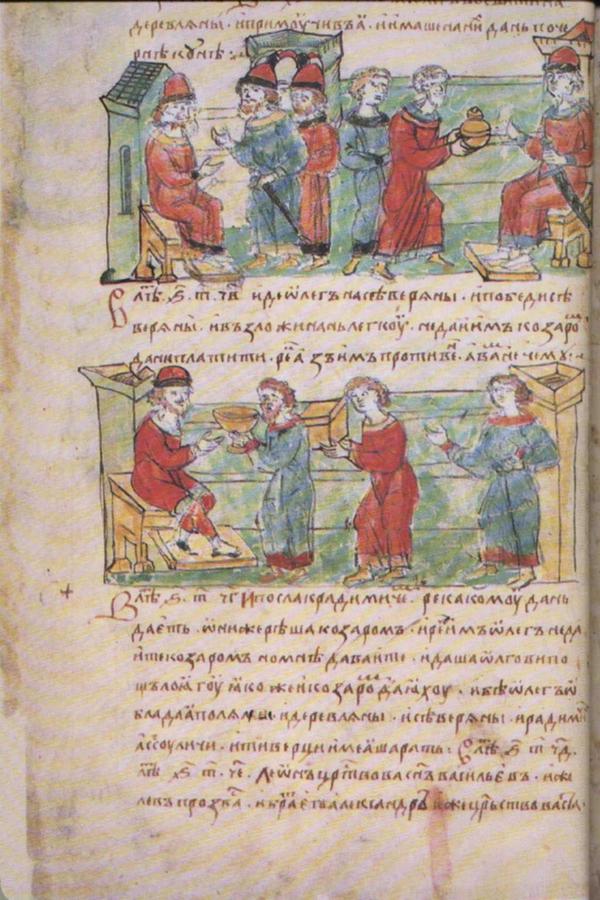 деревлѧны · и примоучивъ ѧ · имаше на ни дань по че
рнѣ кунѣ ·:·
В лѣт҃ · ѕ҃ · т҃ · ч҃в · иде ѡлегъ на сѣверѧны · и победи сѣ
верѧны · и възложи на нь легкоу · не дан имъ козаро
дани платити · ре҃ азъ имъ противе · а вамъ нечему ·:·
В лѣт҃ · ѕ҃ · т҃ · ч҃г И посла к радимиче · река камо дань
даете · ѡни же рѣша козаромъ · и ре҃ имъ ѡлегъ не да
ите козаромъ но мнѣ давайте · и даша ѡлгови по
щьлѧгоу ꙗко же и козаро даꙗхоу · и бѣ ѡлегъ ѡ
бладаꙗ полѧны · и деревлѧны · и сѣверѧны · и радими
а с соуличи · и тиверци имеѧше рать · В лѣт҃ · ѕ҃ · т҃ · ч҃д ·
лѣт҃ · ѕ҃ · т҃ · ч҃е · Леѡнъ црс҃твова сн҃ъ васильевъ · иже
левъ прозва · и бра҃ его александръ иже цр҃ьствова съ